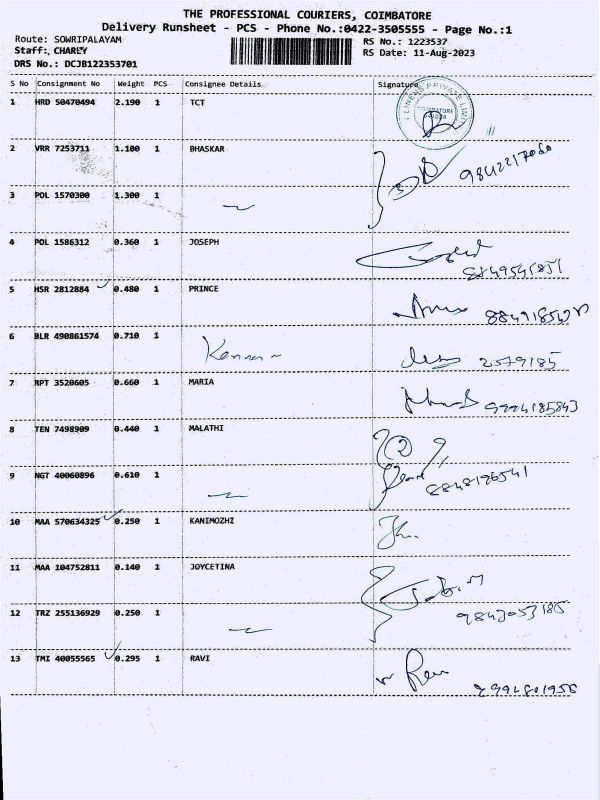 THE PROFESSIONAL COURIERS, COIMBATORE
Delivery Runsheet - PCS - Phone No.:0422-3505555 - Page No.:1
Route: SOWRIPALAYAM RS No.: 1223537
Staff: CHARLY RS Date: 11-Aug-2023
DRS No.: DCJB122353701
S No Consignment No Weight PCS Consignee Details Signature
1 HRD 50470494 2.190 1 TCT
2 VRR 7253711 1.100 1 BHASKAR
3 POL 1570300 1.300 1
4 POL 1586312 0.360 1 JOSEPH
5 HSR 2812884 0.480 1 PRINCE
6 BLR 490861574 0.710 1 Kannan 2579185
7 RPT 3520605 0.660 1 MARIA 9994185843
8 TEN 7498909 0.440 1 MALATHI
9 NGT 40060896 0.610 1 8848196541
10 MAA 570634325 0.250 1 KANIMOZHI
11 MAA 104752811 0.140 1 JOYCETINA
12 TRZ 255136929 0.250 1 9843053185
13 TMI 40055565 0.295 1 RAVI Ravi 9994801956